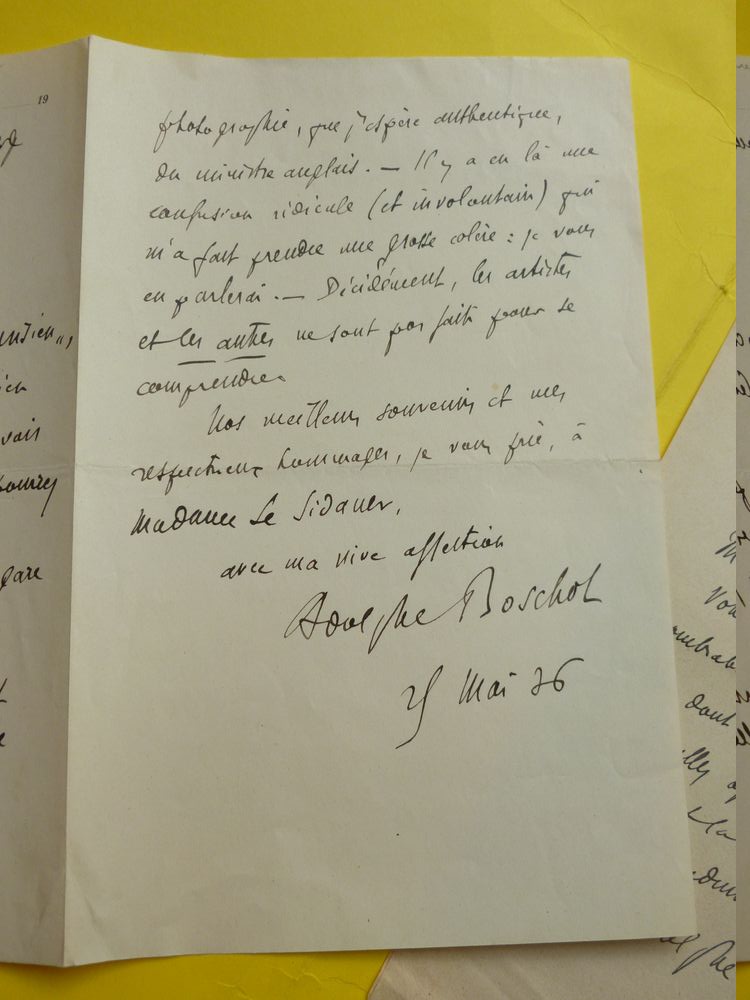 19
photographie, que j'espère authentique,
du ministre anglais. — Il y a eu là une
confusion ridicule (et involontaire) qui
m'a fait prendre une grosse colère : je vous
en parlerai. — Décidément, les artistes
et les autres ne sont pas faits pour se
comprendre.
Nos meilleurs souvenirs et mes
respectueux hommages, je vous prie, à
Madame Le Sidaner,
avec ma vive affection
Adolphe Boschot
25 Mai 36
vait
gare
dont